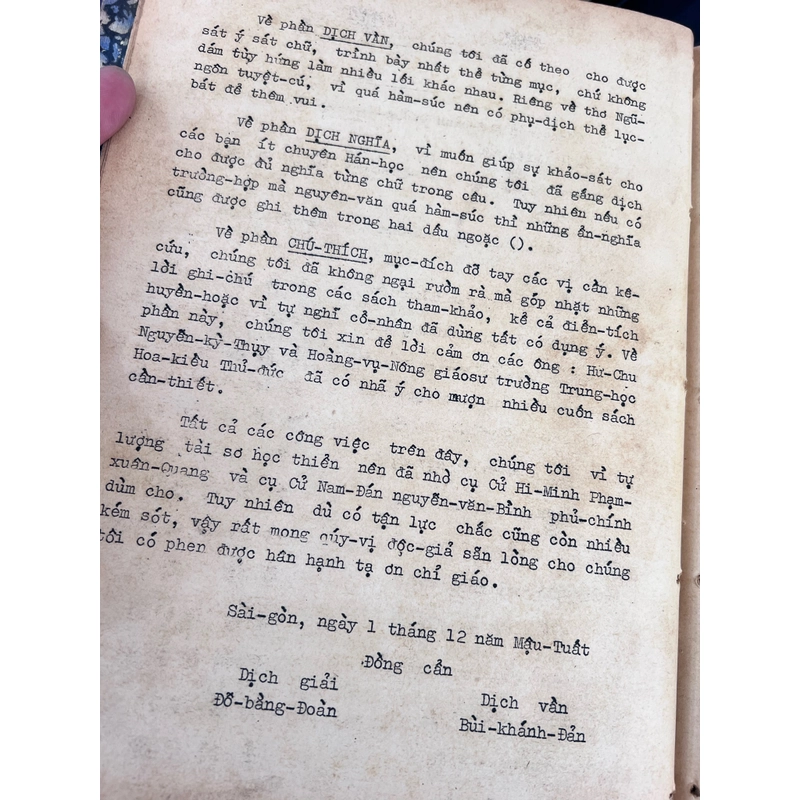 Về phần DỊCH VẦN, chúng tôi đã cố theo cho được
sát ý sát chữ, trình bày nhất thể từng mục, chứ không
dám tùy hứng làm nhiều lối khác nhau. Riêng về thơ Ngũ-
ngôn tuyệt-cú, vì quá hàm-súc nên có phụ-dịch thể lục-
bát để thêm vui.
Về phần DỊCH NGHĨA, vì muốn giúp sự khảo-sát cho
các bạn ít chuyên Hán-học nên chúng tôi đã gắng dịch
cho được đủ nghĩa từng chữ trong câu. Tuy nhiên nếu có
trường-hợp mà nguyên-văn quá hàm-súc thì những ẩn-nghĩa
cũng được ghi thêm trong hai dấu ngoặc ().
Về phần CHÚ-THÍCH, mục-đích đỡ tay các vị cần kê-
cứu, chúng tôi đã không ngại rườm rà mà góp nhặt những
lời ghi-chú trong các sách tham-khảo, kể cả điển-tích
huyền-hoặc vì tự nghĩ cổ-nhân đã dùng tất có dụng ý. Về
phần này, chúng tôi xin để lời cảm ơn các ông : Hư-Chu
Nguyễn-kỳ-Thụy và Hoàng-vụ-Nông giáosư trường Trung-học
Hoa-kiều Thủ-đức đã có nhã ý cho mượn nhiều cuốn sách
cần-thiết.
Tất cả các công việc trên đây, chúng tôi vì tự
lượng tài sơ học thiển nên đã nhờ cụ Cử Hi-Minh Phạm-
xuân-Quang và cụ Cử Nam-Đán nguyễn-văn-Bình phủ-chính
dùm cho. Tuy nhiên dù có tận lực chắc cũng còn nhiều
kém sót, vậy rất mong qúy-vị độc-giả sẵn lòng cho chúng
tôi có phen được hân hạnh tạ ơn chỉ giáo.
Sài-gòn, ngày 1 tháng 12 năm Mậu-Tuất
Đồng cẩn
Dịch giải
Đỗ-bằng-Đoàn
Dịch vần
Bùi-khánh-Đản